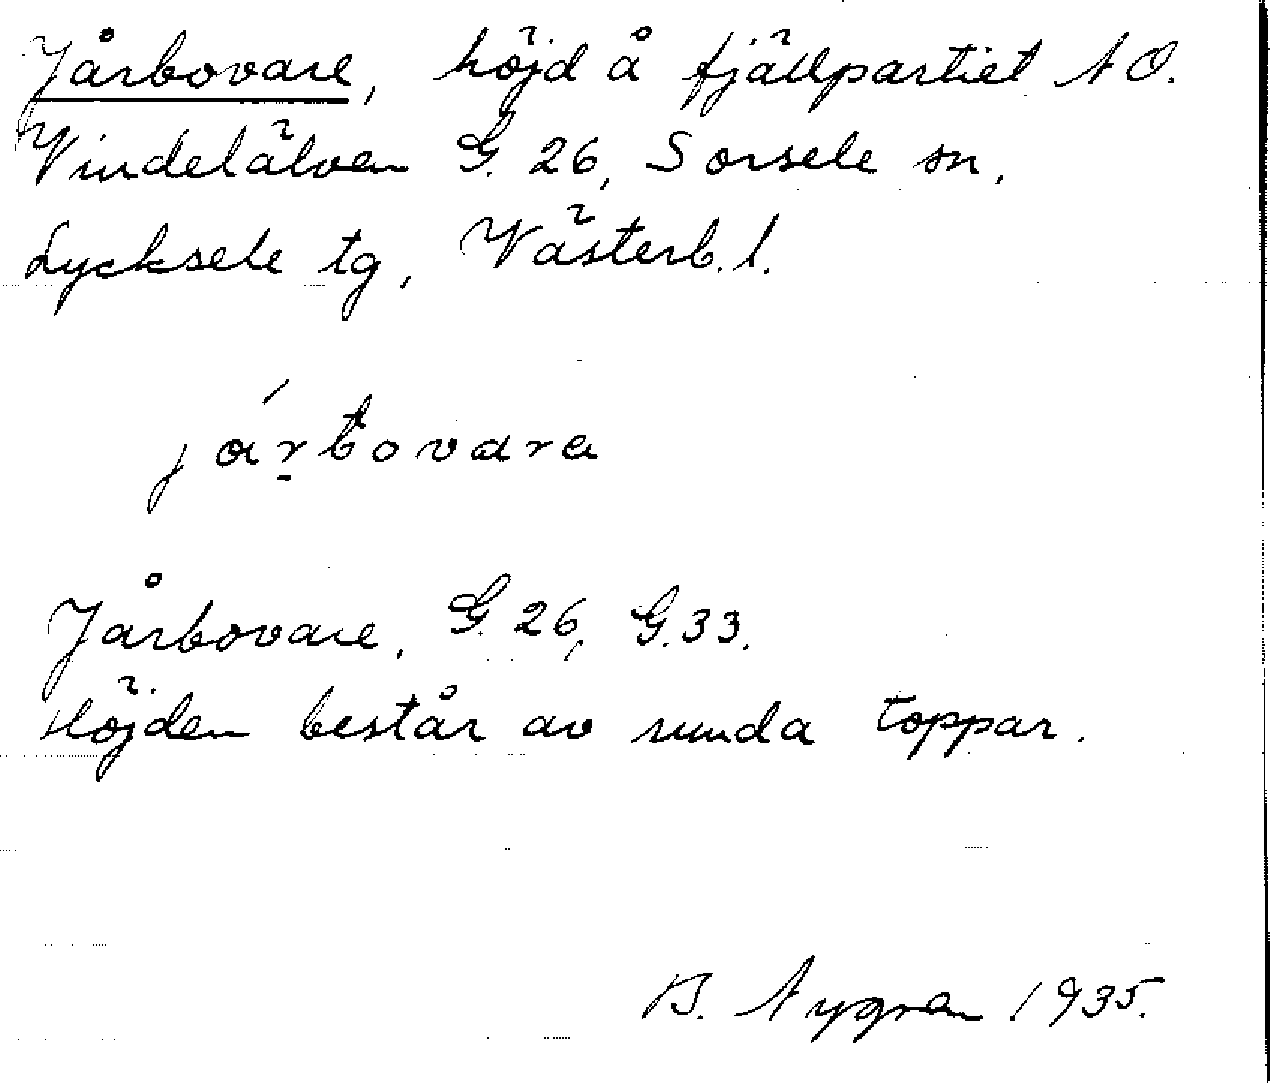 Jårbovare, höjd å fjällpartiet NO.
Vindelälven G. 26, Sorsele sn,
Lycksele tg, Västerb. l.
járbovara
Jårbovare, G. 26, G. 33.
Höjden består av runda toppar.
B. Nygren 1935.